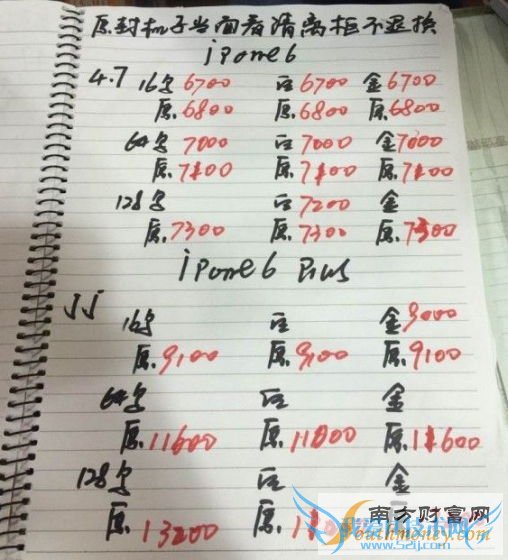 原封机子当面看清离柜不退换
iPone6
4.7 16G 6700 白 6700 金 6700
原.6800 原.6800 原.6800
64G 7000 白 7000 金 7000
原.7100 原.7100 原.7100
128G 白 7200 金
原.7300 原.7300 原.7300
iPone6 Plus
5.5 16G 白 金 9000
原.9100 原.9100 原.9100
64G 白 金
原.11600 原.11800 原.11600
128G 白 金
原.13200 原.1
南方财富网
Southmoney.com
www.52ij.com